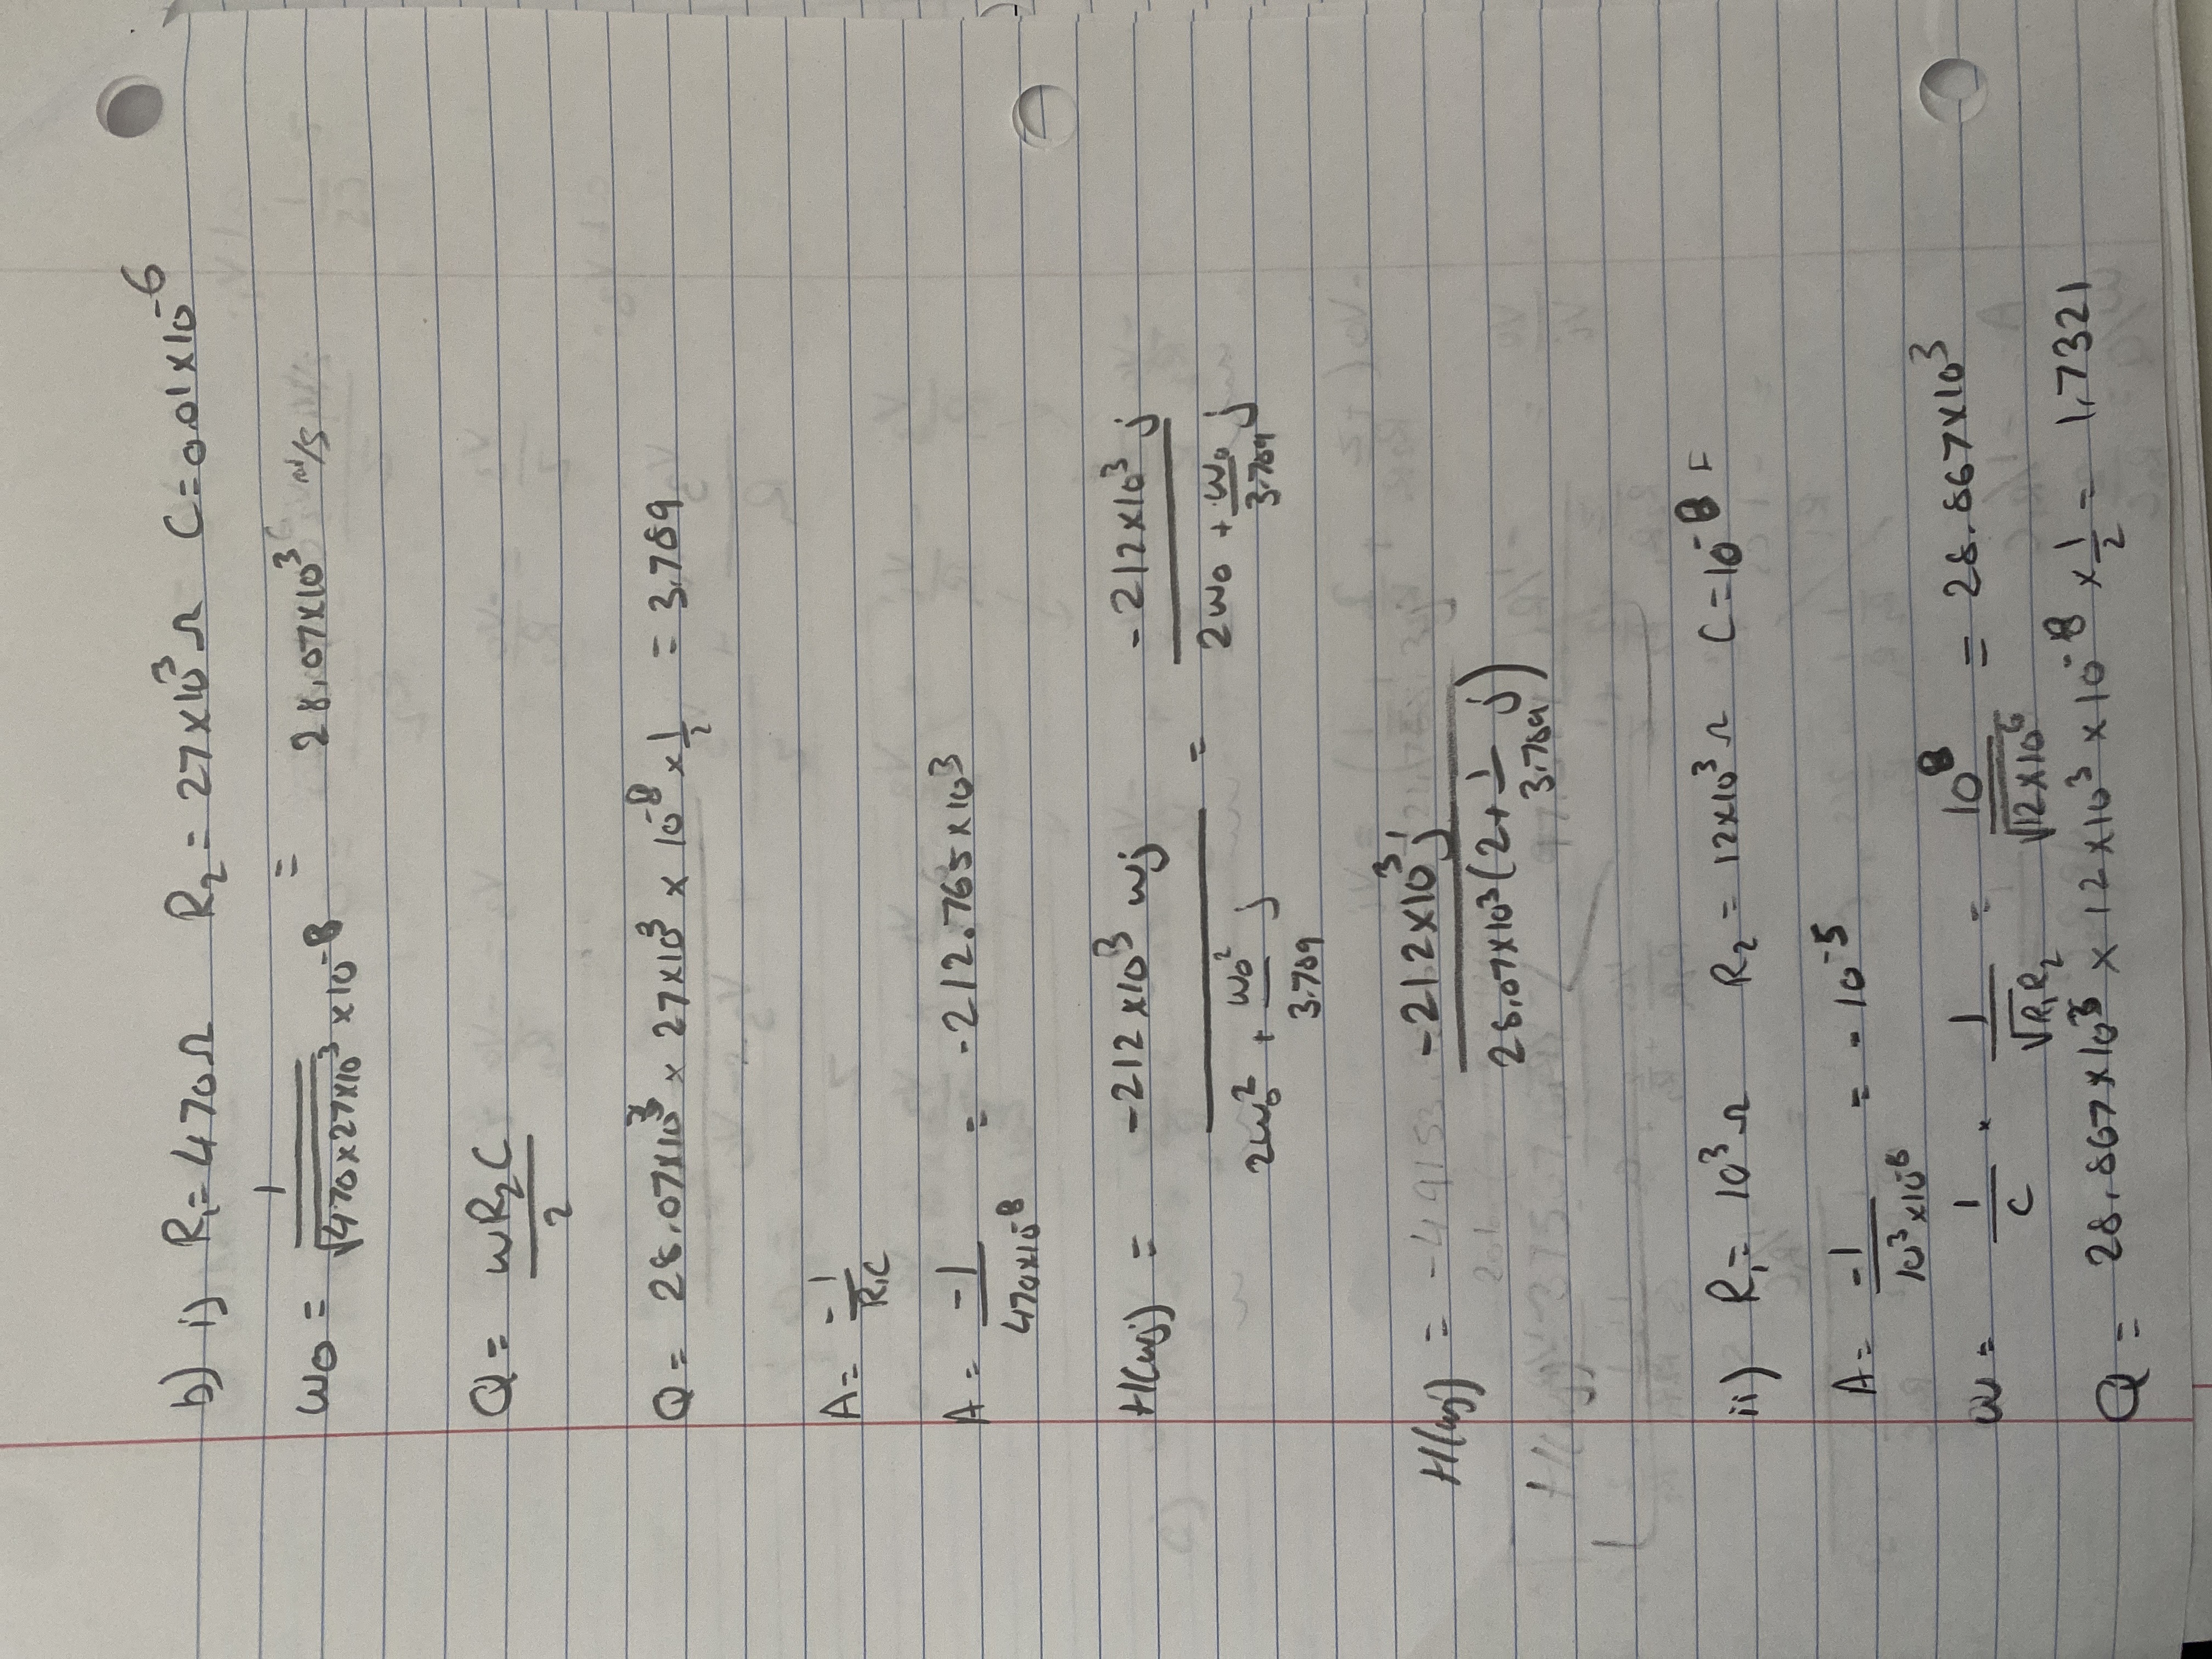 b) i) R₁ = 470Ω R₂ = 27×10³Ω C = 0.01×10⁻⁶
ω₀ = 1/(√(470×27×10³) ×10⁻⁸) = 28.07×10³ rad/s
Q = ωR₂C/2
Q = 28.07×10³ × 27×10³ × 10⁻⁸ × 1/2 = 3.789
A = -1/(R₁C)
A = -1/(470×10⁻⁸) = -212.765×10³
H(ωj) = (-212×10³ ωj)/(2ω₀² + (ω₀²/3.789) j) = (-212×10³ j)/(2ω₀ + (ω₀/3.789) j)
H(ωj) = (-212×10³ j)/(28.07×10³(2 + (1/3.789) j))
ii) R₁ = 10³Ω R₂ = 12×10³Ω C = 10⁻⁸ F
A = -1/(10³×10⁻⁸) = -10⁻⁵
ω = 1/C × 1/√(R₁R₂) = 10⁸/√(12×10⁶) = 28.867×10³
Q = 28.867×10³ × 12×10³ × 10⁻⁸ × 1/2 = 1.7321